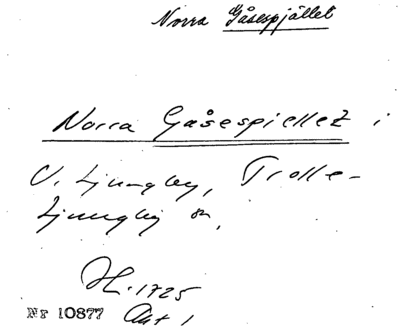 Norra Gåsespjället
Norra Gåsespiellet i
V. Ljungby, Trolle-
Ljungby sn,
1725
Nr 10877 Akt 1